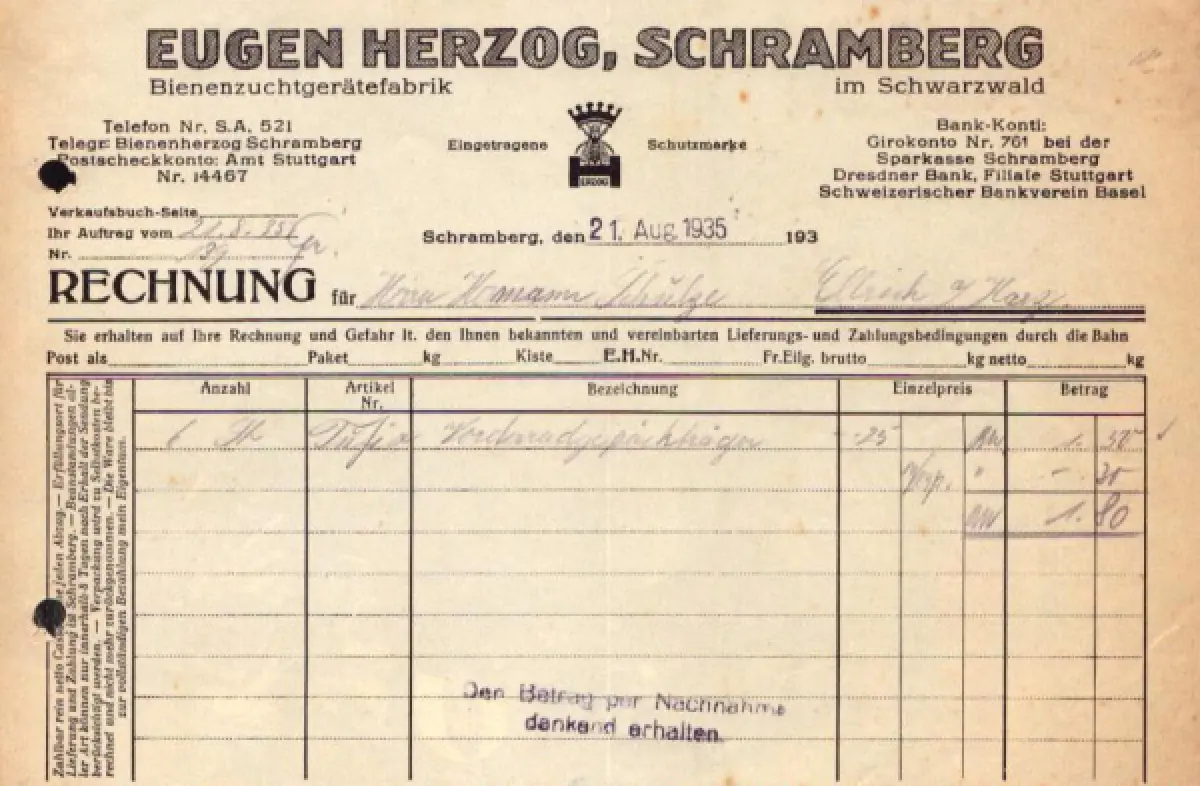 EUGEN HERZOG, SCHRAMBERG
Bienenzuchtgerätefabrik im Schwarzwald
Telefon Nr. S.A. 521
Telegr: Bienenherzog Schramberg
Postscheckkonto: Amt Stuttgart
Nr. 14467
Eingetragene Schutzmarke
HERZOG
Bank-Konti:
Girokonto Nr. 761 bei der
Sparkasse Schramberg
Dresdner Bank, Filiale Stuttgart
Schweizerischer Bankverein Basel
Verkaufsbuch-Seite
Ihr Auftrag vom 21.8.35
Nr.
Schramberg, den 21. Aug. 1935 193
RECHNUNG für Herrn Hermann Schulze Ellrich a/Harz.
Sie erhalten auf Ihre Rechnung und Gefahr lt. den Ihnen bekannten und vereinbarten Lieferungs- und Zahlungsbedingungen durch die Bahn
Post als Paket kg Kiste E.H.Nr. Fr.Eilg. brutto kg netto kg
Anzahl Artikel Nr. Bezeichnung Einzelpreis Betrag
6 -.25 1.50
Verp. " -.30
1.80
Den Betrag per Nachnahme
dankend erhalten.
Zahlbar rein netto jeden Abzug. — Erfüllungsort für
Lieferung und Zahlung ist Schramberg. — Beanstandungen al-
ler Art können nur innerhalb 8 Tagen nach Erhalt der Sendung
berücksichtigt werden. — Verpackung wird zu Selbstkosten be-
rechnet und nicht mehr zurückgenommen. — Die Ware bleibt bis
zur vollständigen Bezahlung mein Eigentum.